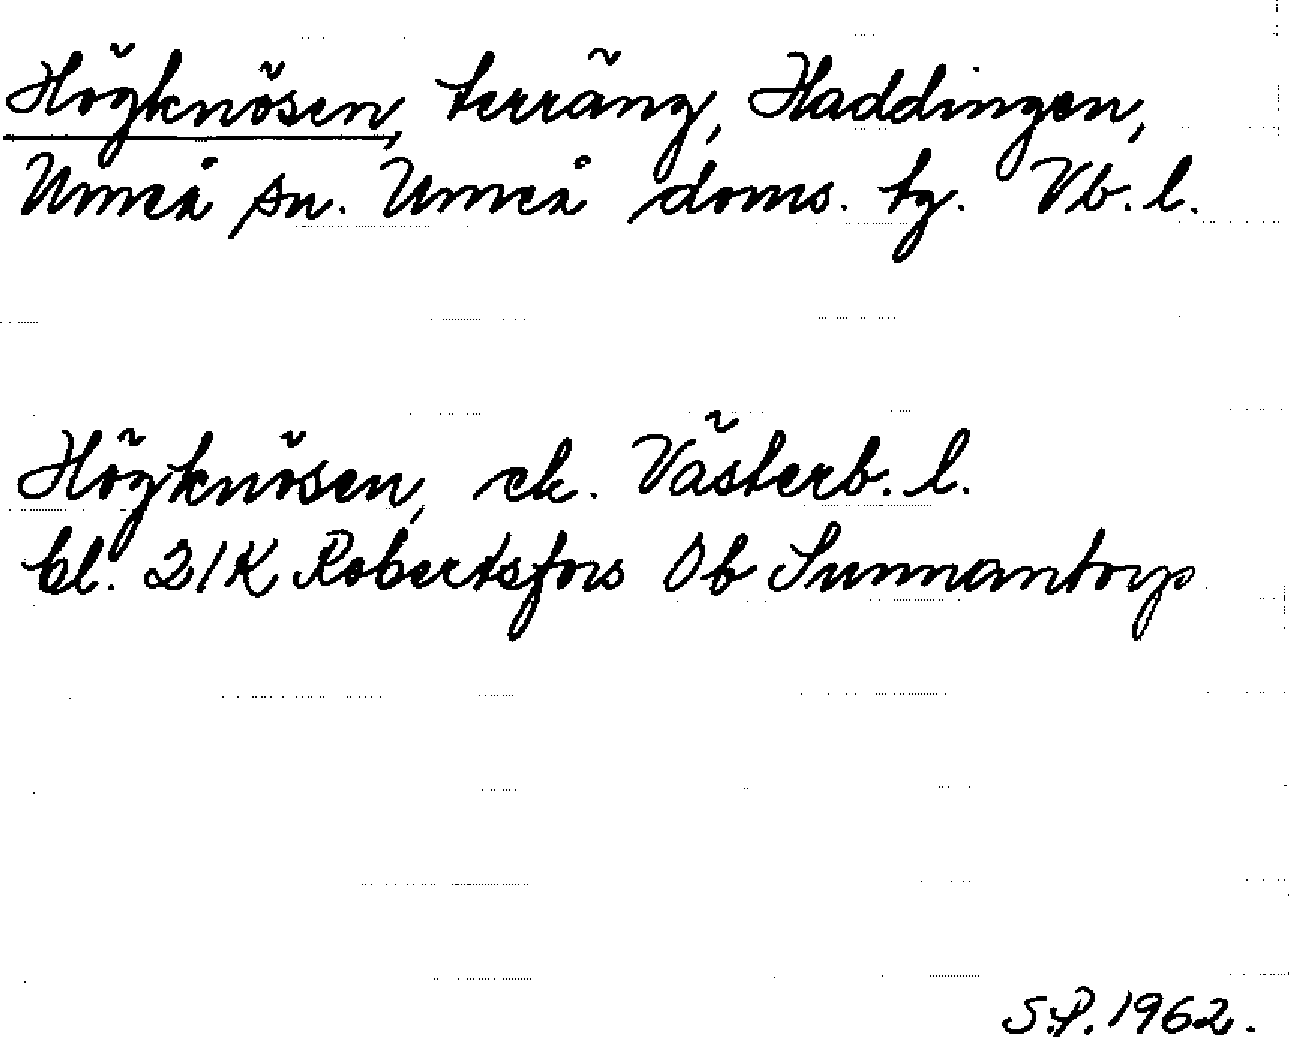 Högknösen, terräng, Haddingen,
Umeå sn. Umeå doms. tg. Vb. l.
Högknösen, ek. Västerb. l.
bl. 21K Robertsfors Ob Sunnantorp
S.P. 1962.